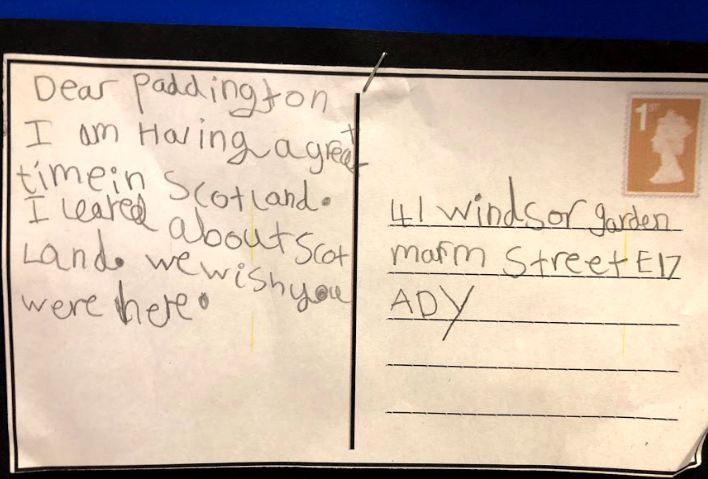 Dear paddington
I am Having a great
timein Scotland.
I leared about Scot
Land. we wish you
were here.
1ST
41 windsor garden
marm Street E17
ADY